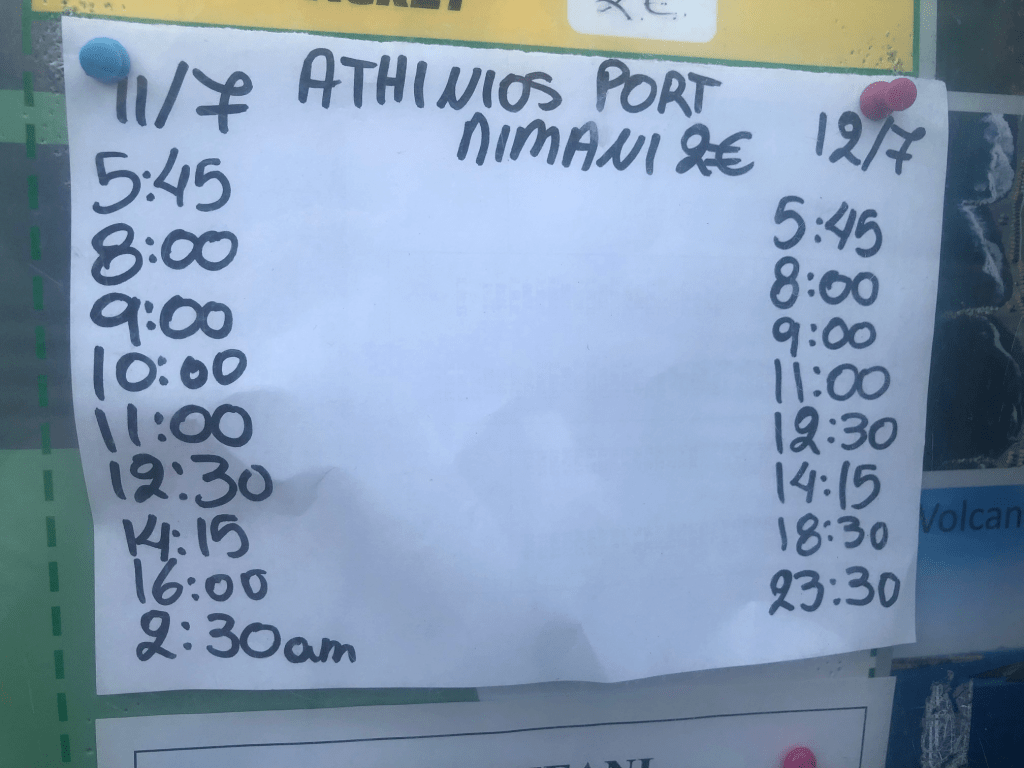 2 €.
11/7 ATHINIOS PORT
NIMANI 2€ 12/7
5:45
8:00
9:00
10:00
11:00
12:30
14:15
16:00
2:30am
5:45
8:00
9:00
11:00
12:30
14:15
18:30
23:30
Volcan